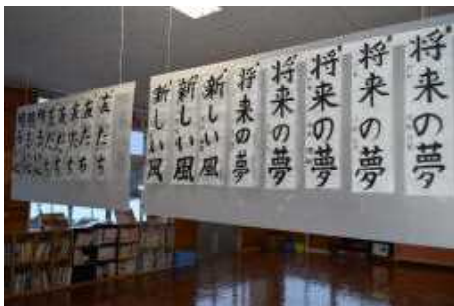 将来の夢
将来の夢
将来の夢
将来の夢
将来の夢
新しい風
新しい風
新しい風
友だち
友だち
友だち
友だち
友だち